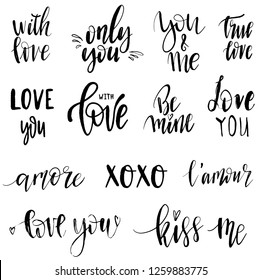 with
love
only
you
you
& me
true
love
LOVE
you
WITH
love
Be
mine
Love
YOU
amore
XOXO
l'amour
love you
kiss me
shutterstock.com · 1259883775